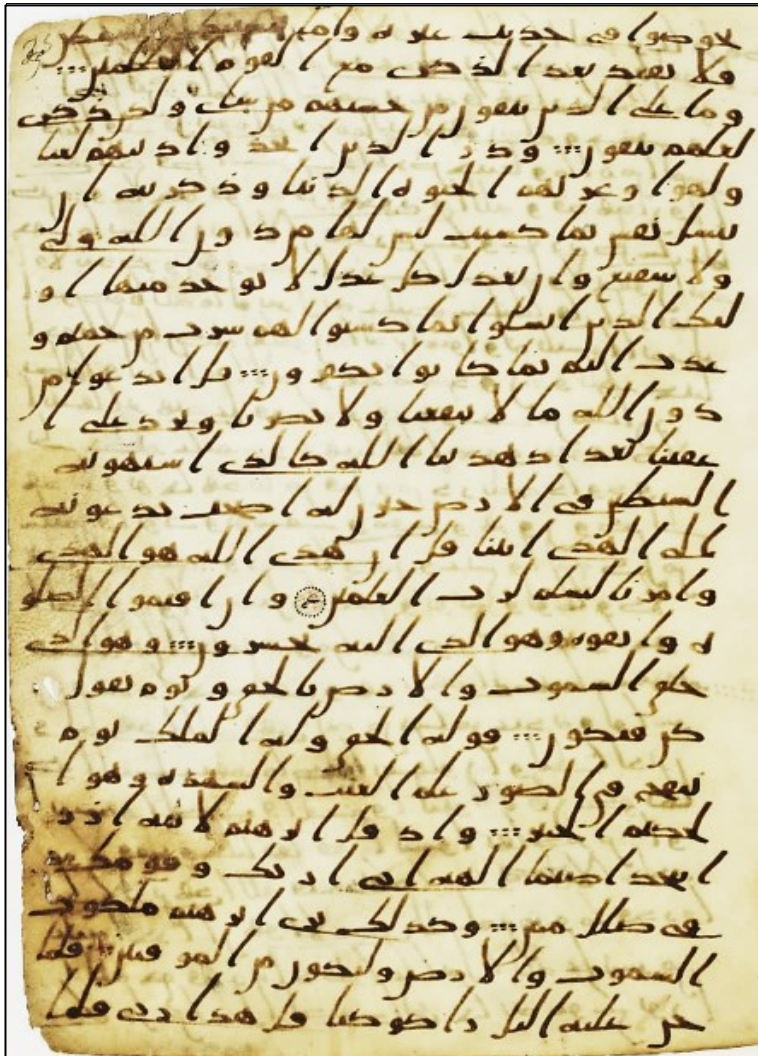 يخوضوا في حديث غيره واما
فلا تقعد بعد الذكرى مع القوم الظلمين
وما على الذين يتقون من حسبهم من شى ولكن ذكرى
لعلهم يتقون وذر الذين اتخذوا دينهم لعبا
ولهوا وغرتهم الحيوة الدنيا وذكر به ان
تبسل نفس بما كسبت ليس لها من دون الله ولي
ولا شفيع وان تعدل كل عدل لا يوخذ منها او
لئك الذين ابسلوا بما كسبوا لهم شرب من حميم و
عذب اليم بما كانوا يكفرون قل اندعوا من
دون الله ما لا ينفعنا ولا يضرنا ونرد على ا
عقبنا بعد اذ هدينا الله كالذي استهوته
الشيطين في الارض حيرن له اصحب يدعونه
الى الهدى ائتنا قل ان هدى الله هو الهدى
وامرنا لنسلم لرب العلمين وان اقيموا الصلو
ة واتقوه وهو الذي اليه تحشرون وهو الذي
خلق السموت والارض بالحق ويوم يقول
كن فيكون قوله الحق وله الملك يوم
ينفخ في الصور علم الغيب والشهدة وهو ا
لحكيم الخبير واذ قل ابرهيم لابيه ازر
اتتخذ اصنما الهة اني اريك وقومك
في ضلل مبين وكذلك نري ابرهيم ملكوت
السموت والارض وليكون من الموقنين فلما
جن عليه اليل را كوكبا قل هذا ربي فلما